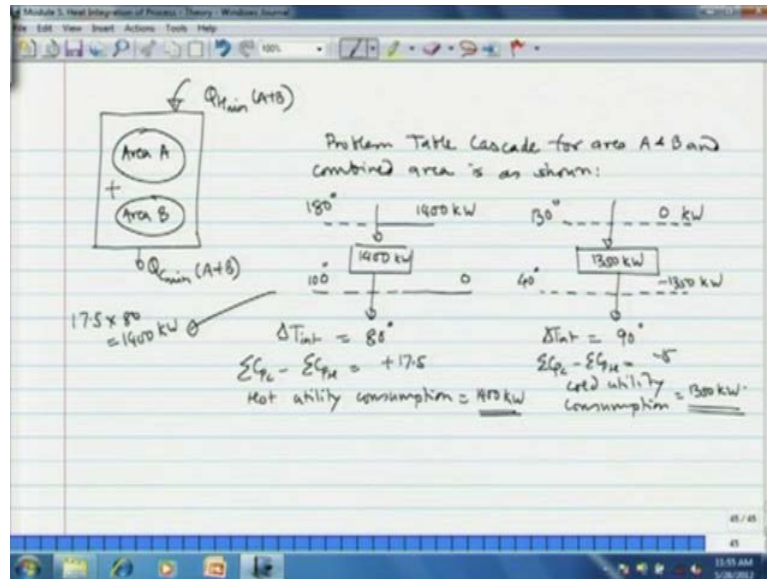 Module 5. Heat Integration of Process - Theory - Windows Journal
File Edit View Insert Actions Tools Help
100%
QHmin (A+B)
Area A
+
Area B
QCmin (A+B)
Problem Table Cascade for area A & B and
combined area is as shown:
180° 1400 kW
1400 kW
100° 0
130° 0 kW
1300 kW
40° -1300 kW
17.5 × 80
= 1400 kW
ΔTint = 80°
ΣCPC - ΣCPH = +17.5
Hot utility consumption = 1400 kW
ΔTint = 90°
ΣCPC - ΣCPH =
cold utility
consumption = 1300 kW.
45 / 45
45
11:55 AM
5/28/2012